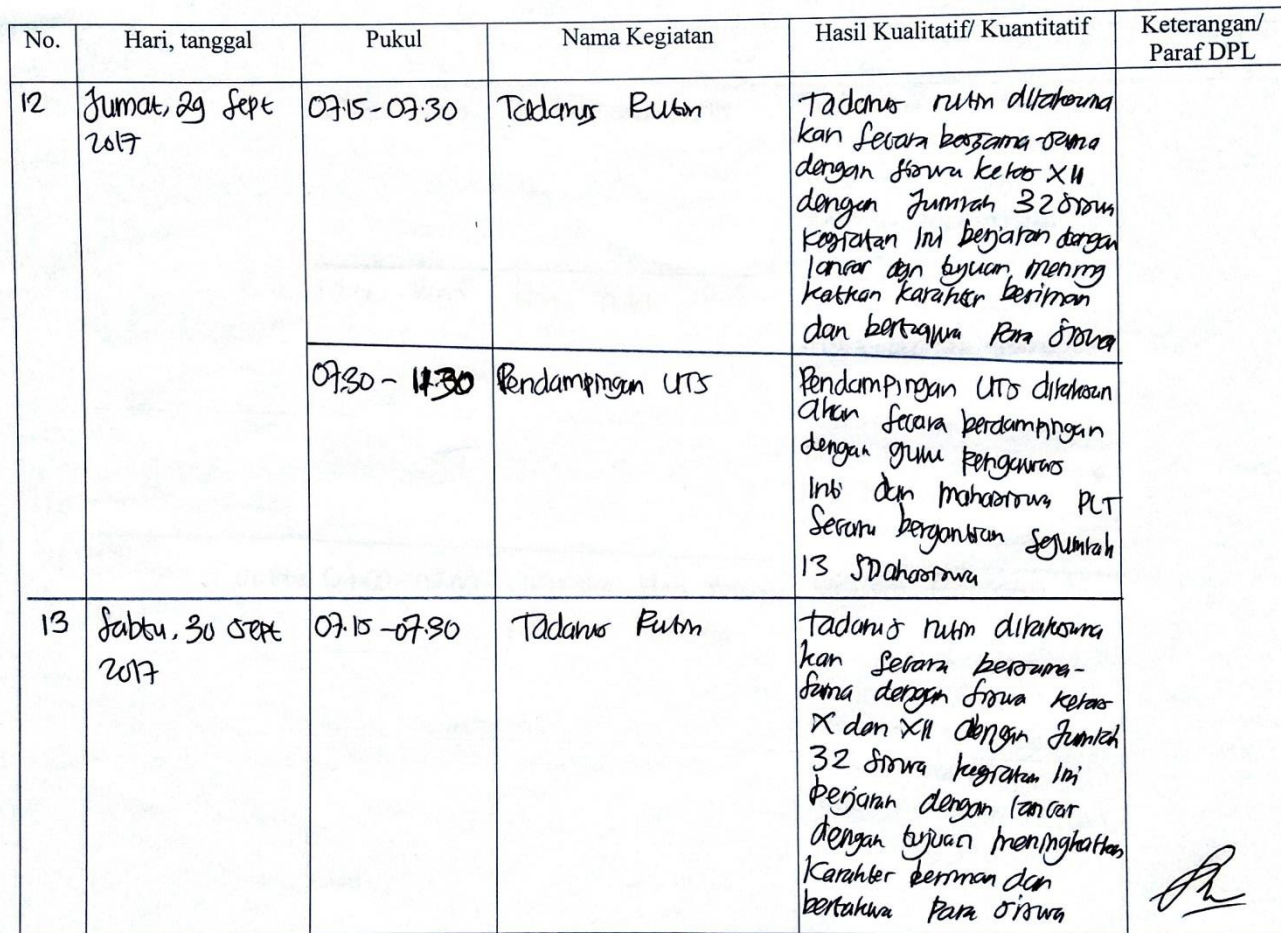 No. Hari, tanggal Pukul Nama Kegiatan Hasil Kualitatif/ Kuantitatif Keterangan/
Paraf DPL
12 Jumat, 29 Sept 07.15-07.30 Tadarus Rutin Tadarus rutin dilaksana
2017
kan secara bersama-sama
dengan siswa kelas XII
dengan Jumlah 32 siswa
kegiatan Ini berjalan dengan
lancar dgn tujuan mening
katkan karakter beriman
dan bertaqwa Para siswa
07.30 - 11.30 Pendampingan UTS Pendampingan UTS dilaksan
akan secara berdampingan
dengan guru pengawas
Inti dan mahasiswa PLT
Secara bergantian sejumlah
13 mahasiswa
13 Sabtu, 30 Sept 07.15-07.30 Tadarus Rutin Tadarus rutin dilaksana
2017
kan secara bersama-
sama dengan siswa kelas
X dan XII dengan Jumlah
32 siswa kegiatan Ini
berjalan dengan lancar
dengan tujuan meningkatkan
Karakter beriman dan
bertakwa Para siswa